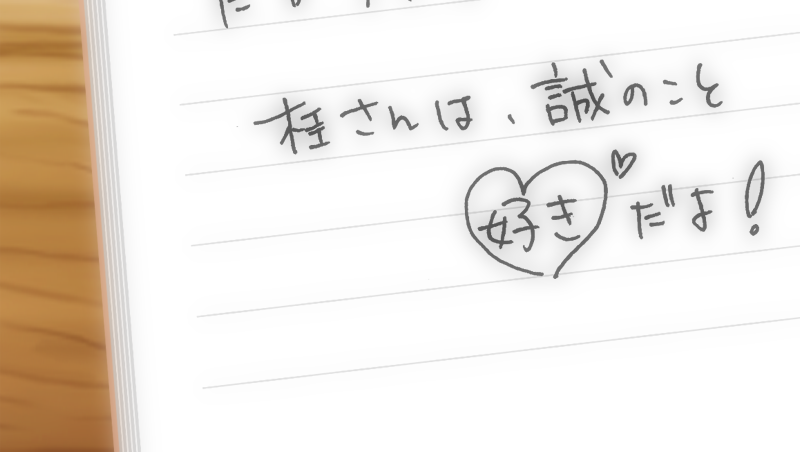 桂さんは、誠のこと
好きだよ!